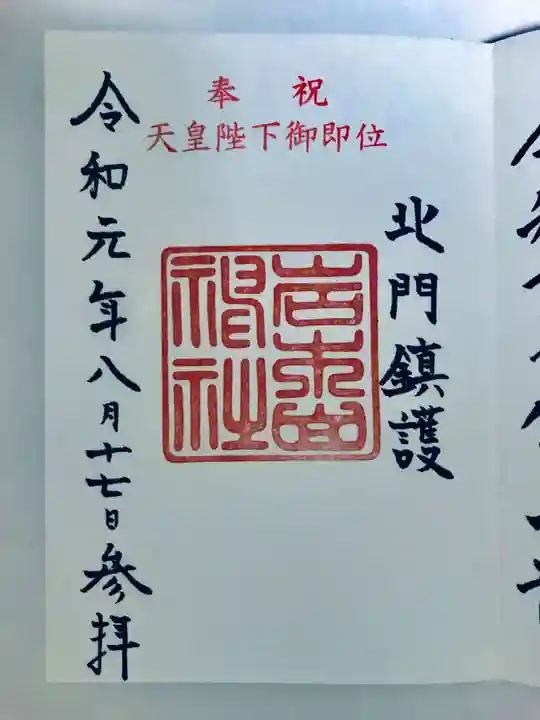 奉祝
天皇陛下御即位
北門鎮護
神社
令和元年八月十七日参拝